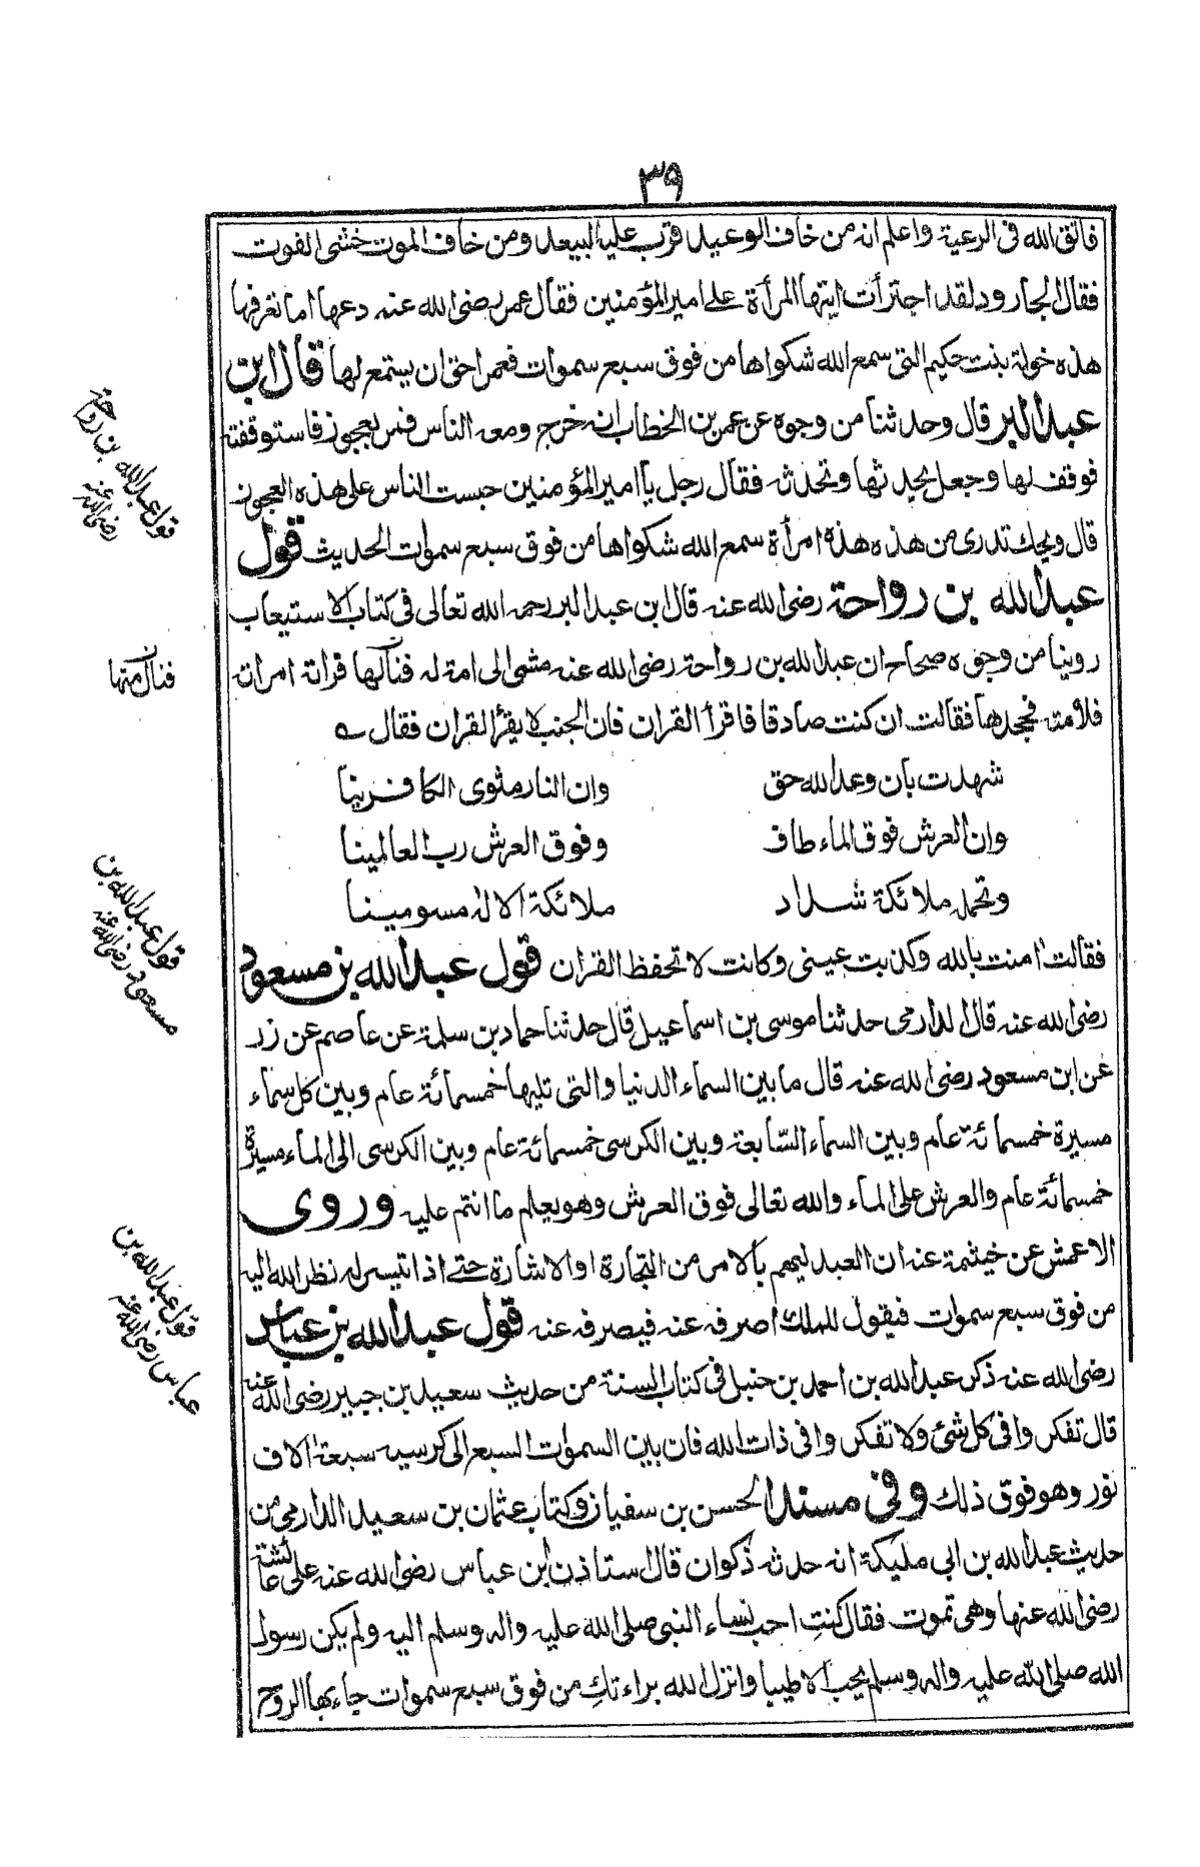 ٣٩
فاتق الله فى الرعية واعلم انه من خاف الوعيد قرب عليه البعيد ومن خاف الموت خشى الفوت
فقال الجارود لقد اجترأت ايتها المرأة على امير المؤمنين فقال عمر رضى الله عنه دعها اما تعرفها
هذه خولة بنت حكيم التى سمع الله شكواها من فوق سبع سموات فعمر احق ان يستمع لها قال ابن
عبد البر قال وحدثنا من وجوه عن عمر بن الخطاب انه خرج ومعه الناس فمر بعجوز فاستوقفته
فوقف لها وجعل يحدثها وتحدثه فقال رجل يا امير المؤمنين حبست الناس على هذه العجوز
قال ويحك تدرى من هذه هذه امرأة سمع الله شكواها من فوق سبع سموات الحديث قول
عبد الله بن رواحة رضى الله عنه قال ابن عبد البر رحمه الله تعالى فى كتاب الاستيعاب
روينا من وجوه صحاح ان عبد الله بن رواحة رضى الله عنه مشى الى امة له فنالها فراته امراته
فلامته فجحدها فقالت ان كنت صادقا فاقرأ القران فان الجنب لا يقرأ القران فقال
شهدت بان وعد الله حق وان النار مثوى الكافرينا
وان العرش فوق الماء طاف وفوق العرش رب العالمينا
وتحمله ملائكة شداد ملائكة الاله مسومينا
فقالت امنت بالله وكذبت عينى وكانت لا تحفظ القران قول عبد الله بن مسعود
رضى الله عنه قال الدارمى حدثنا موسى بن اسماعيل قال حدثنا حماد بن سلمة عن عاصم عن زر
عن ابن مسعود رضى الله عنه قال ما بين السماء الدنيا والتى تليها خمسمائة عام وبين كل سماء
مسيرة خمسمائة عام وبين السماء السابعة وبين الكرسى خمسمائة عام وبين الكرسى الى الماء مسيرة
خمسمائة عام والعرش على الماء والله تعالى فوق العرش وهو يعلم ما انتم عليه وروى
الاعمش عن خيثمة عنه ان العبد ليهم بالامر من التجارة او الاشارة حتى اذا تيسر له نظر الله اليه
من فوق سبع سموات فيقول للملك اصرفه عنه فيصرفه عنه قول عبد الله بن عباس
رضى الله عنه ذكر عبد الله بن احمد بن حنبل فى كتاب السنة من حديث سعيد بن جبير رضى الله عنه
قال تفكروا فى كل شئ ولا تفكروا فى ذات الله فان بين السموات السبع الى كرسيه سبعة الاف
نور وهو فوق ذلك وفى مسند الحسن بن سفيان وكتاب عثمان بن سعيد الدارمى من
حديث عبد الله بن ابى مليكة انه حدثه ذكوان قال ستاذن ابن عباس رضى الله عنه على عائشة
رضى الله عنها وهى تموت فقال كنت احب نساء النبى صلى الله عليه واله وسلم اليه ولم يكن رسول
الله صلى الله عليه واله وسلم يحب الا طيبا وانزل الله براءتك من فوق سبع سموات جاء بها الروح
قول عبد الله بن رواحة
رضى الله عنه
فنال منها
قول عبد الله بن
مسعود رضى الله عنه
قول عبد الله بن
عباس رضى الله عنه